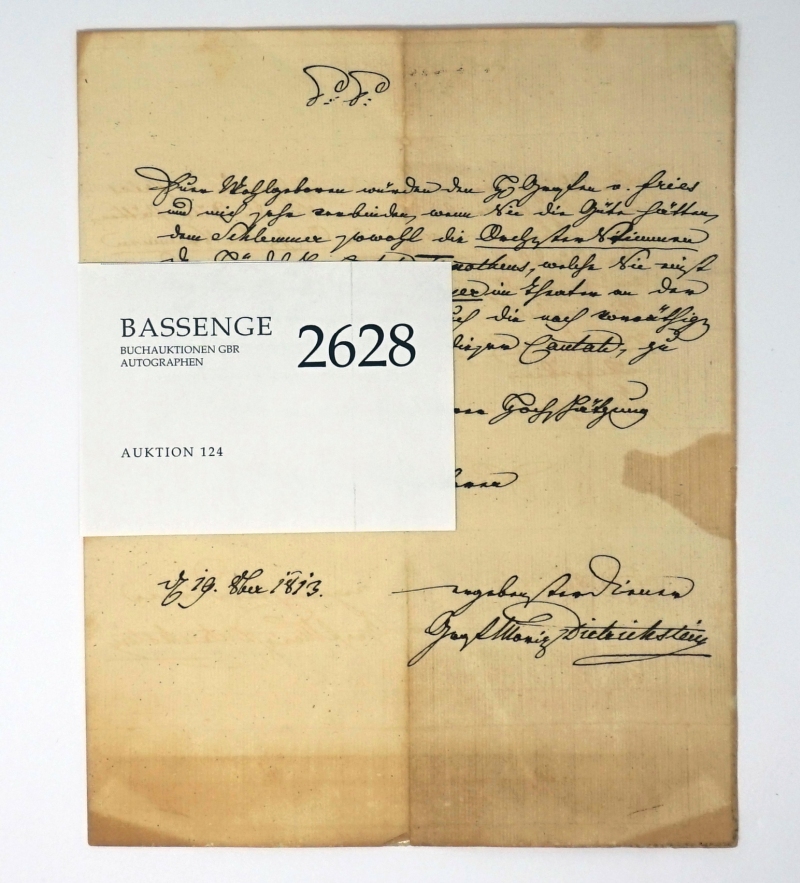 P. P.
Euer Wohlgeboren würden den H. Grafen v. Fries
und mich sehr verbinden, wenn Sie die Güte hätten,
dem Schlemmer sowohl die Orchester Stimmen
welche Sie einst
im Theater an der
die noch vorräthig
dieser Cantate, zu
BASSENGE
BUCHAUKTIONEN GBR
AUTOGRAPHEN
2628
AUKTION 124
Hochschätzung
19. 8ber 1813.
ergebenster Diener
Graf Moriz Dietrichstein